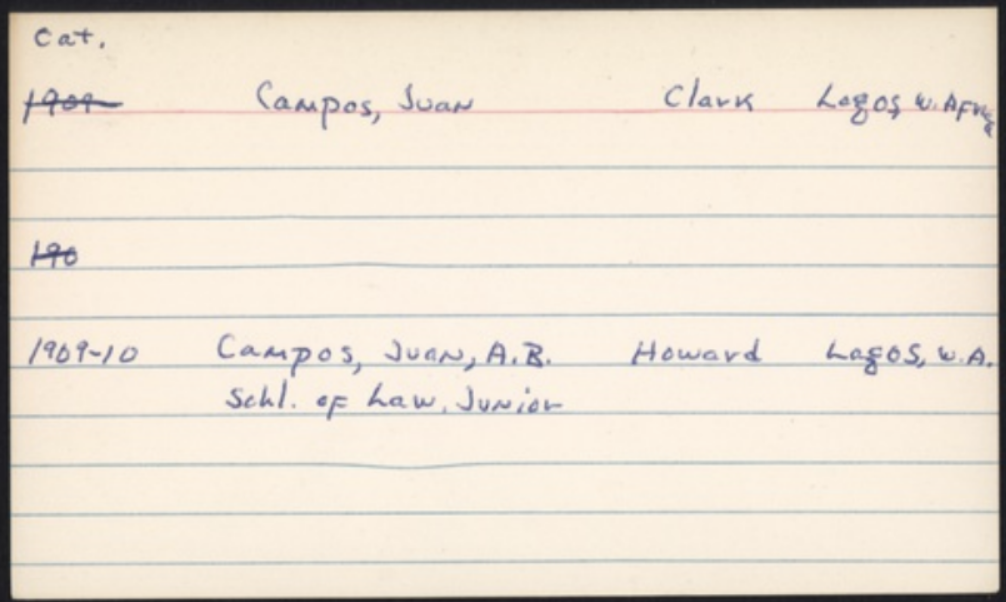 Cat.
1909- Campos, Juan Clark Lagos, W. Africa
190
1909-10 Campos, Juan, A.B. Howard Lagos, W.A.
Schl. of Law, Junior